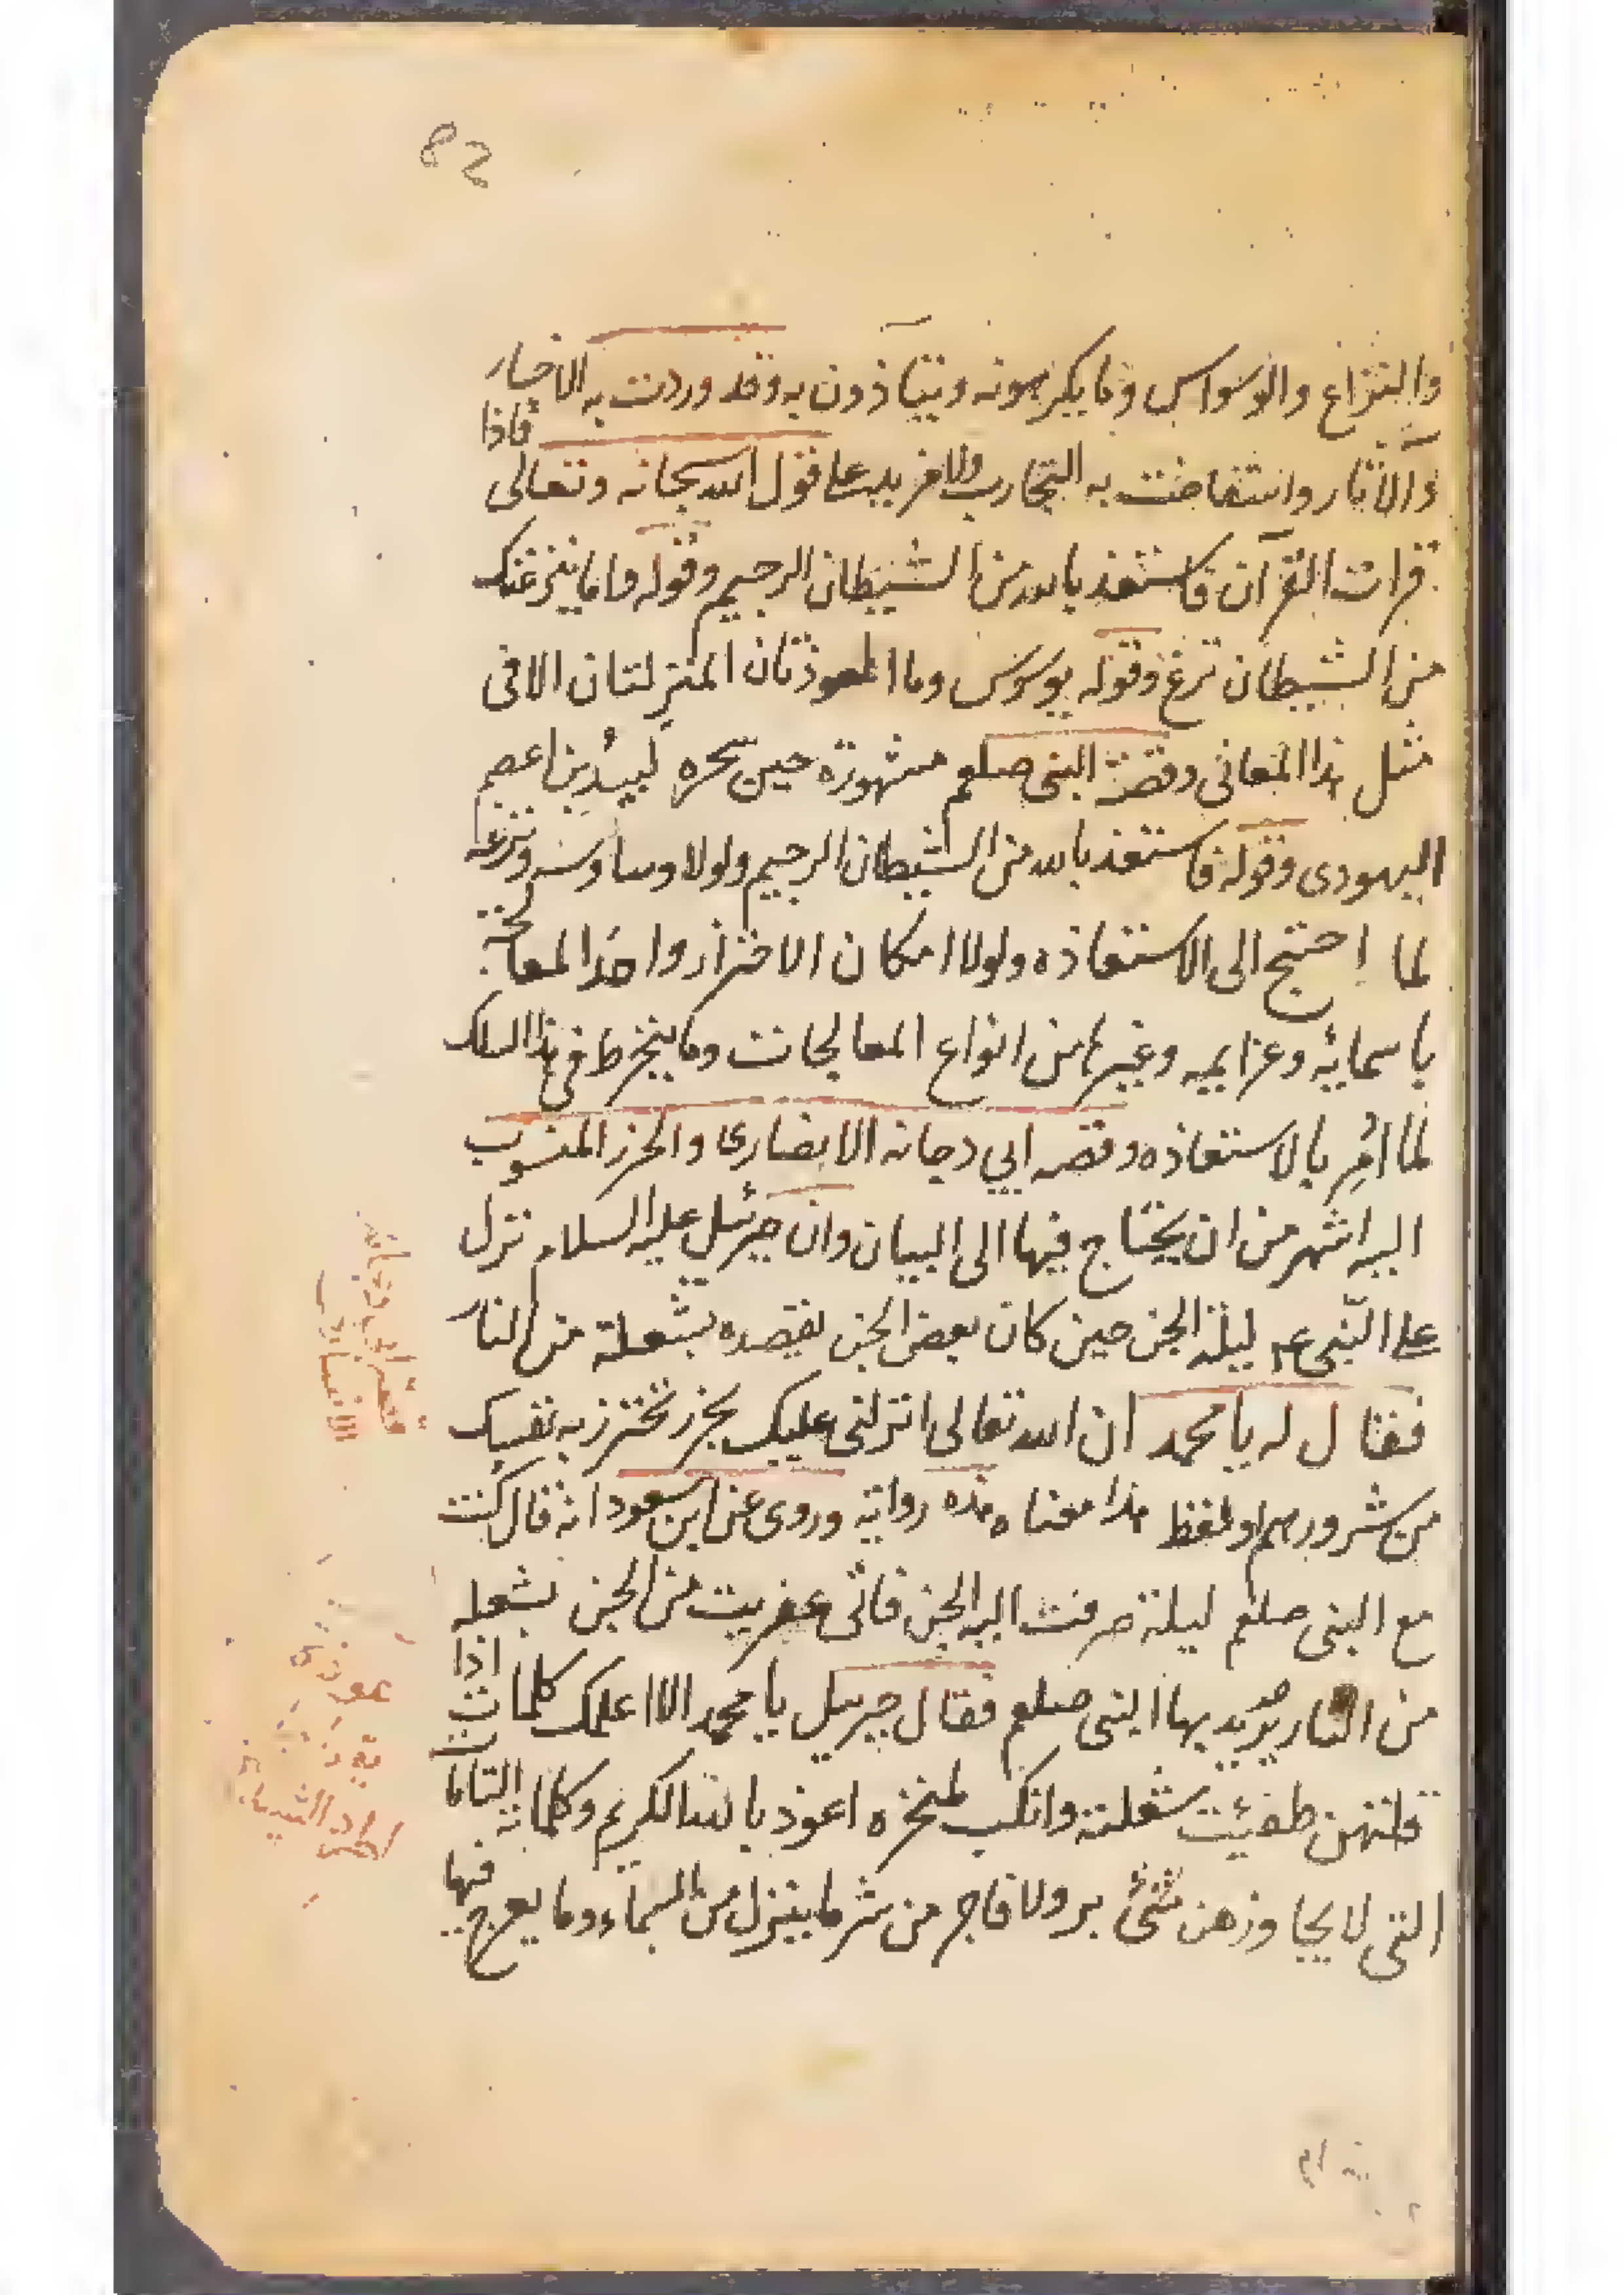 82
والنزاع والوسواس وما يكرهونه ويتاذون به وقد وردت به الاخبار
والآثار واستفاضت به التجارب على قول الله سبحانه وتعالى فاذا
قرات القرآن فاستعذ بالله من الشيطان الرجيم وقوله واما ينزغنك
من الشيطان نزغ وقوله يوسوس وما المعوذتان المنزلتان الا فى
مثل هذا المعانى وقصة النبى صلعم مشهورة حين سحره لبيد بن اعصم
اليهودى وقوله فاستعذ بالله من الشيطان الرجيم ولولا وساوسه ونزغه
لما احتيج الى الاستعاذه ولولا امكان الاحتراز واحد المعالجة
باسمايه وعزايمه وغيرها من انواع المعالجات وما ينخرط فى هذا السلك
لما امر بالاستعاذه وقصه ابي دجانه الانصارى والحرز المنسوب
اليه اشهر من ان يحتاج فيها الى البيان وان جبرئيل عليه السلام نزل
على النبى عم ليلة الجن حين كان بعض الجن يقصده بشعلة من النار
فقال له يا محمد ان الله تعالى انزلنى عليك بحرز تحترز به نفسك
من شرورهم ولفظ هذا معناه هذه رواية وروى عن ابن مسعود انه قال كنت
مع النبى صلعم ليلة صرفت اليه الجن فاتى عفريت من الجن بشعله
من النار يريد بها النبى صلعم فقال جبريل يا محمد الا اعلمك كلمات اذا
قلتهن طفئت شعلته وانكب لمنخره اعوذ بالله الكريم وكلماته التامات
التى لا يجاوزهن شئ بر ولا فاجر من شر ما ينزل من السماء وما يعرج فيها
قصه ابي دجانه
الانصارى